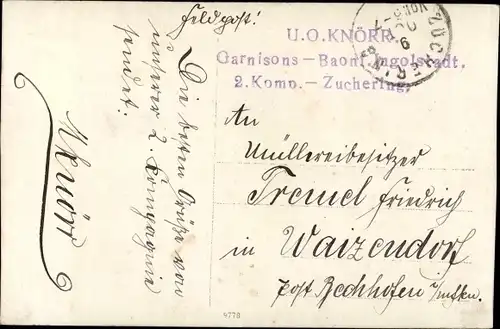 Feldpost!
U.O. KNÖRR
Garnisons – Baon. Ingolstadt.
2. Komp. – Zuchering.
ZUCHERING
Die besten Grüße von
unserer 2. Kompagnie
sendet:
UKnörr
An
Müllereibesitzer
Tremel Friedrich
in Waizendorf
post Bechhofen
4770